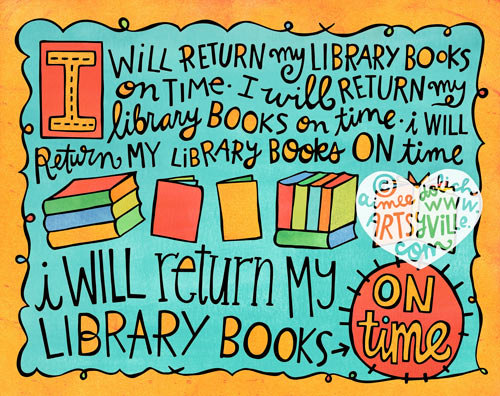 I WiLL RETURN my LIBRARY BOOKS
on TIME. I will RETURN my
library BOOKS on time. i WILL
Return MY LiBRARY BOOKS ON time
© dolich
aimee www.
ARTSyville.
com
i WILL return MY
LIBRARY BOOKS →
ON
time